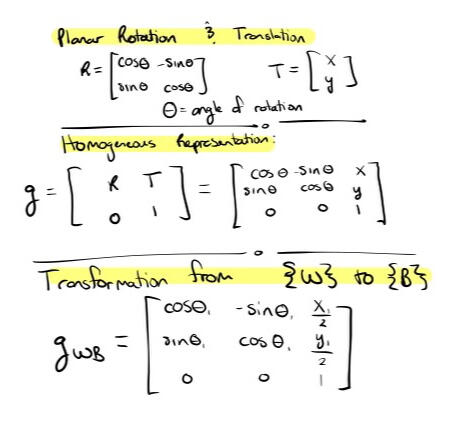 Planar Rotation & Translation
R = [cosθ -sinθ
sinθ cosθ] T = [x
y]
θ = angle of rotation
Homogeneous Representation:
g = [R T
0 1] = [cosθ -sinθ x
sinθ cosθ y
0 0 1]
Transformation from {W} to {B}
g_WB = [cosθ₁ -sinθ₁ x₁/2
sinθ₁ cosθ₁ y₁/2
0 0 1]